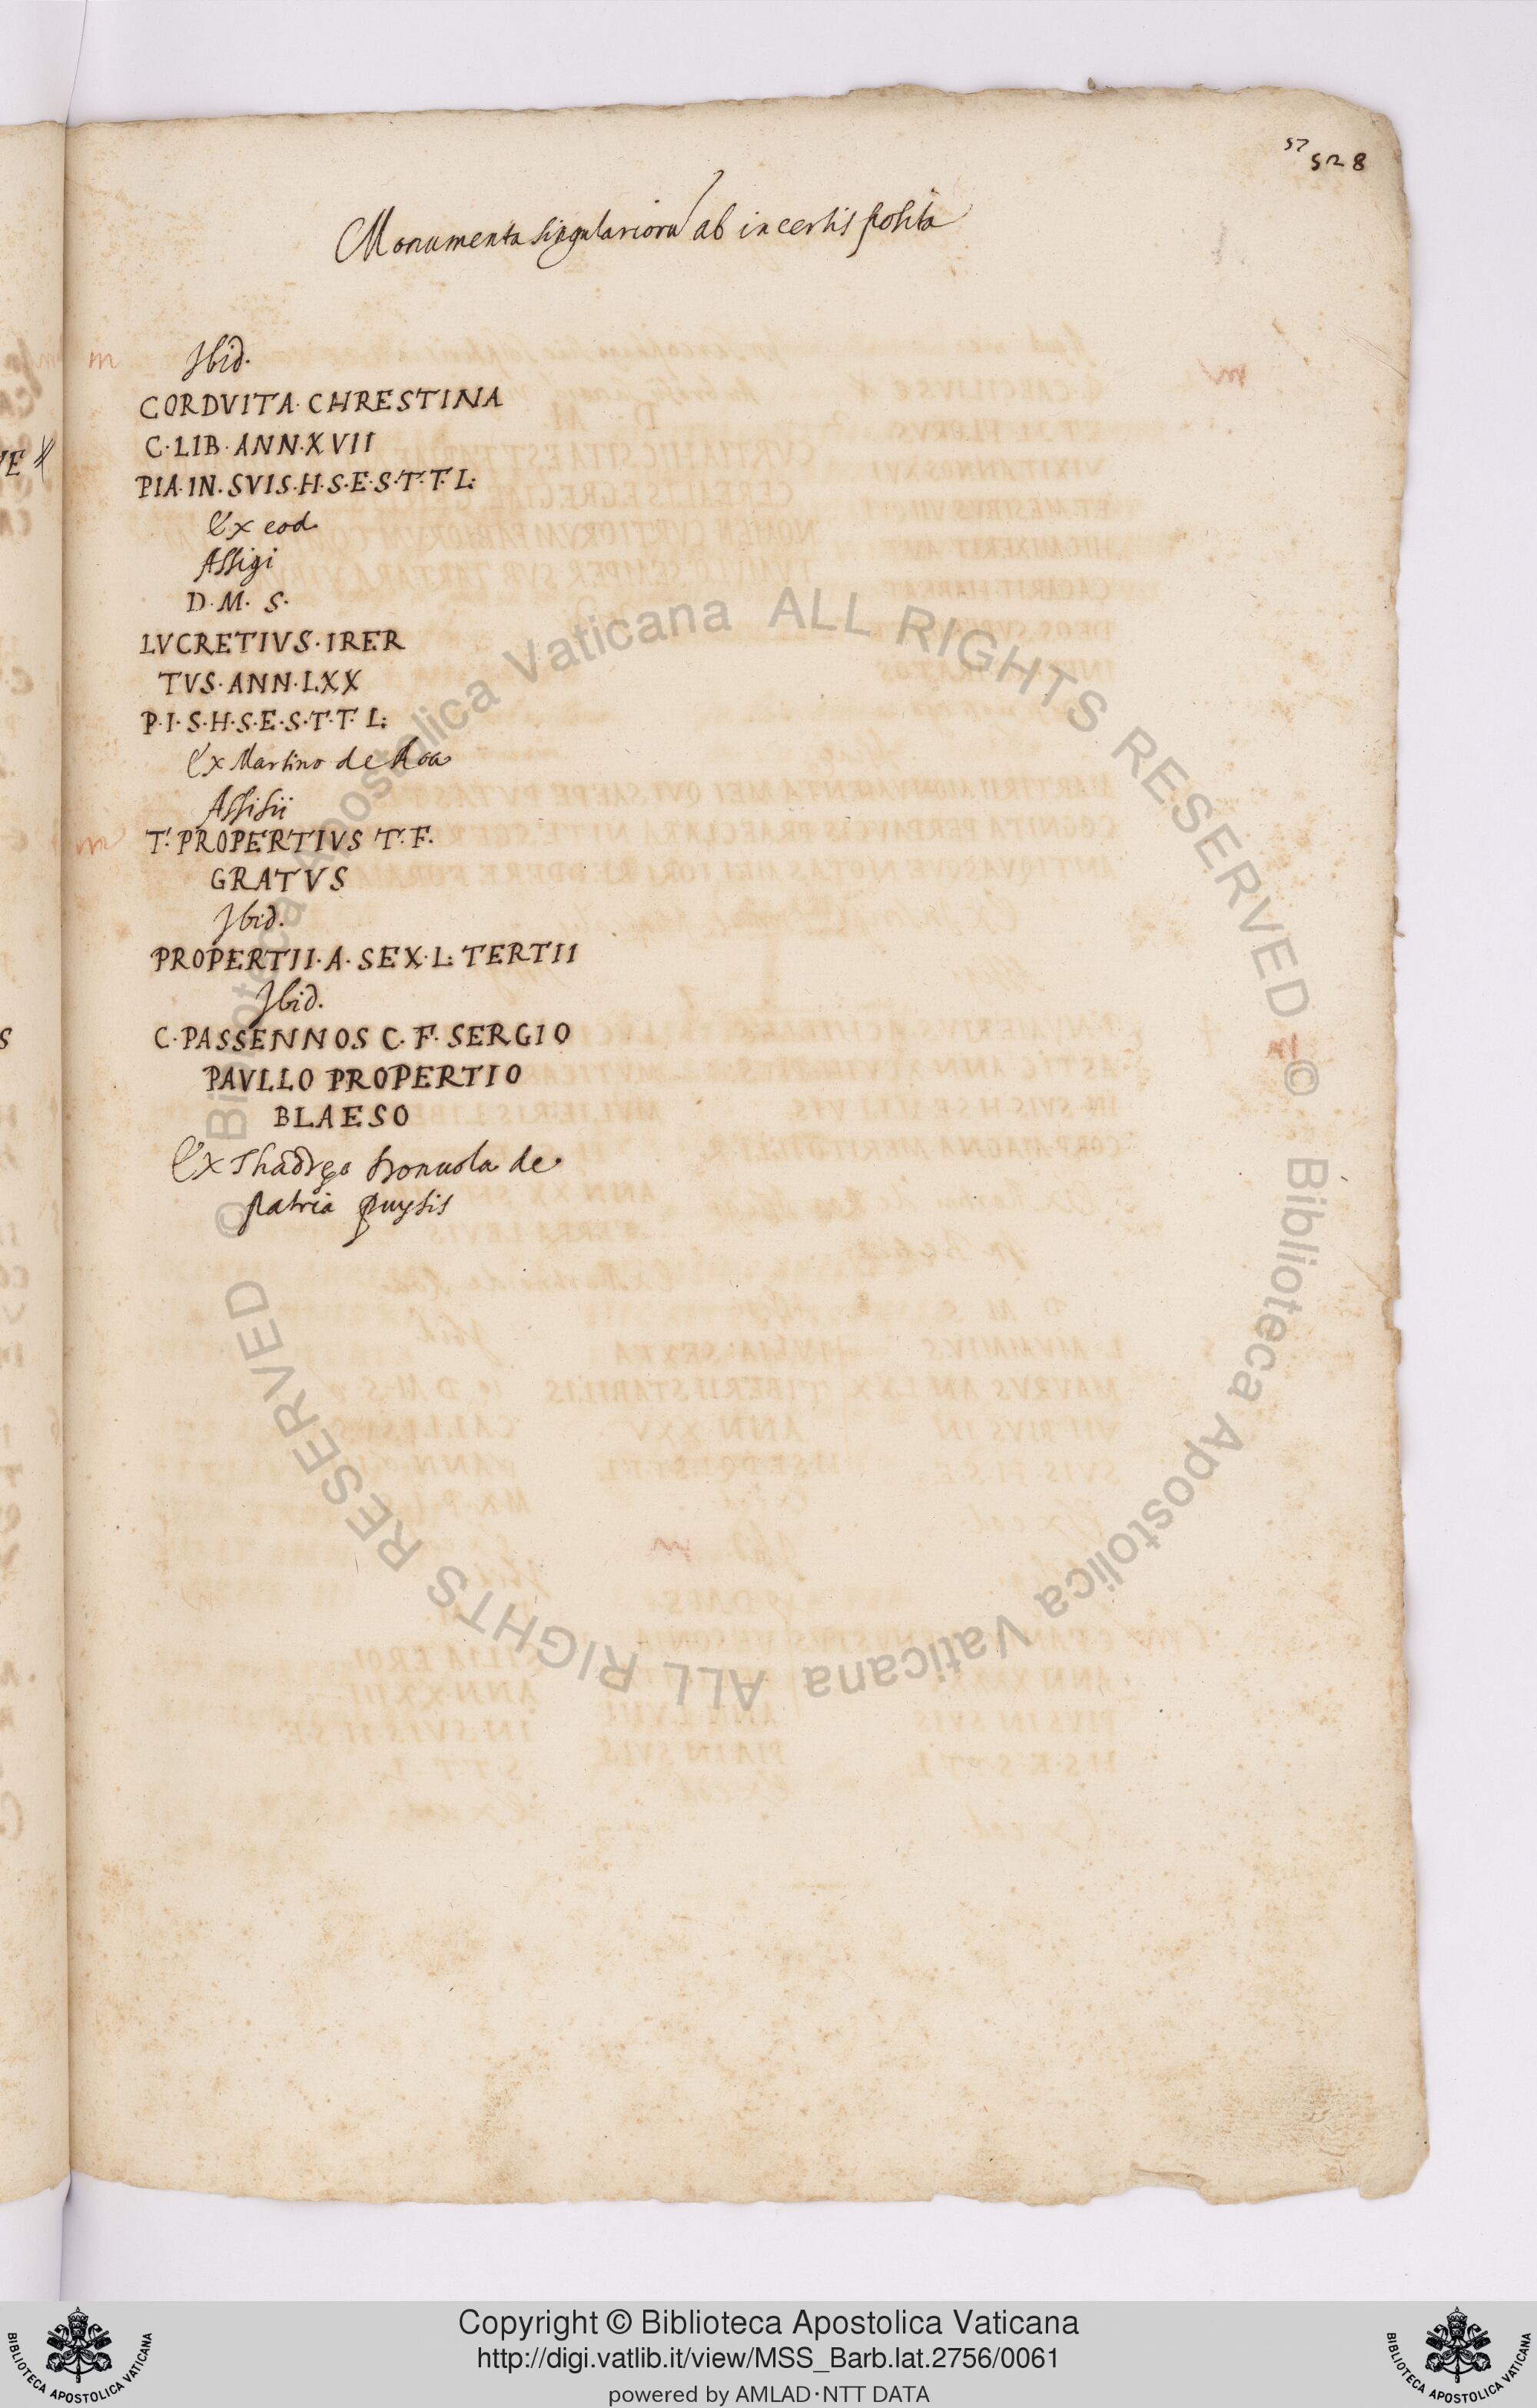 57
528
Monumenta singulariorũ ab incertis posita
m Ibid.
CORDVITA·CHRESTINA
C·LIB·ANN·XVII
PIA·IN·SVIS·H·S·E·S·T·T·L:
Ex eod
Assigi
D·M·S·
LVCRETIVS·IRER
TVS·ANN·LXX
P·I·S·H·S·E·S·T·T·L:
Ex Martino de Roa
Assisii
m T. PROPERTIVS T. F.
GRATVS
Ibid.
PROPERTII·A·SEX·L: TERTII
Ibid.
C·PASSENNOS C·F·SERGIO
PAVLLO PROPERTIO
BLAESO
Ex de
patria
© Biblioteca Apostolica Vaticana ALL RIGHTS RESERVED © Biblioteca Apostolica Vaticana ALL RIGHTS RESERVED
Copyright © Biblioteca Apostolica Vaticana
http://digi.vatlib.it/view/MSS_Barb.lat.2756/0061
powered by AMLAD·NTT DATA
BIBLIOTECA APOSTOLICA VATICANA
BIBLIOTECA APOSTOLICA VATICANA